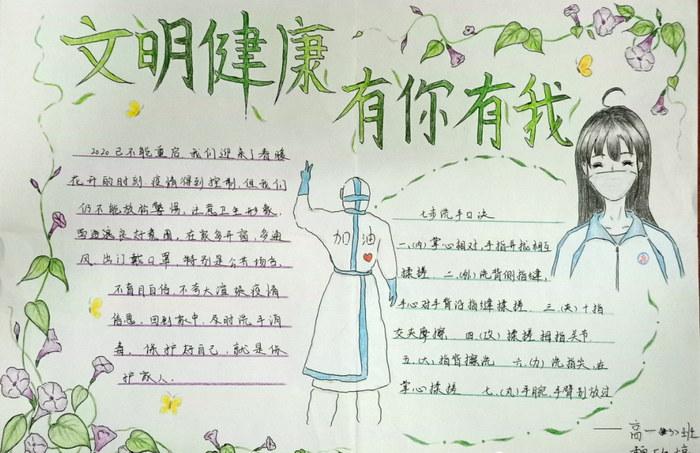 文明健康
有你有我
2020已不能重启,我们迎来了春暖
花开的时刻 疫情得到控制,但我们
仍不能放松警惕,注意卫生形象,
营造良好氛围,在家多开窗,多通
风,出门戴口罩,特别是公共场合,
不盲目自信,不夸大渲染疫情
信息,回到家中,及时洗手消
毒,保护好自己,就是保
护家人.
加油
七步洗手口决
一、(内)掌心相对,手指并拢相互
揉搓 二、(外)洗背侧指缝,
手心对手背沿指缝揉搓 三、(夹)十指
交夹摩擦, 四、(攻)揉搓拇指关节
五、(大)指背擦洗 六、(力)洗指尖,在
掌心揉搓 七、(丸)手腕,手臂别放过
——高一 班